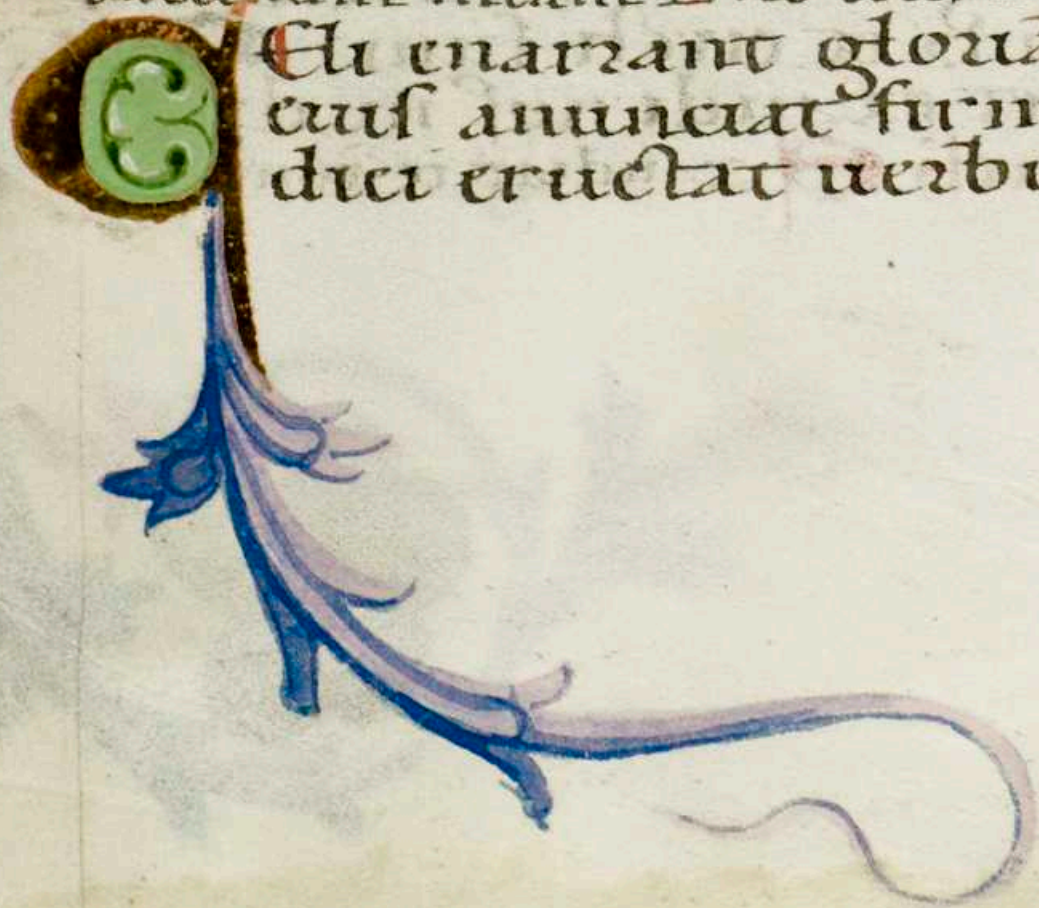 Celi enarrant gloria
eius anunciat firm
dici eructat uerbu